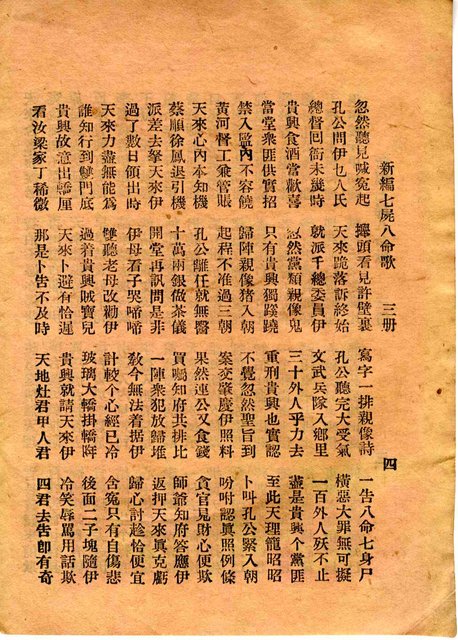 新編七屍八命歌 三册 四
忽然聽見喊冤起 擇頭看見許壁裏 寫字一排親像詩 一告八命七身尸
孔公問伊乜人氏 天來跪落訴終始 孔公聽完大受氣 橫惡大罪無可擬
總督回衙未幾時 就派千總委員伊 文武兵隊入鄉里 一百外人殀不止
貴興食酒當歡喜 忽然黨類親像鬼 三十外人乎力去 盡是貴興個黨匪
當堂衆匪供實招 只有貴興獨蹊蹺 重刑貴興也實認 至此天理龍昭昭
禁入監內不容饒 歸陣親像猪入朝 不覺忽然聖旨到 卜叫孔公緊入朝
黃河督工兼管賬 起程不准過三朝 案交肇慶伊照料 吩咐認眞照例條
天來心內本知機 孔公離任就無醫 果然連公又食錢 貪官見財心便欺
蔡順徐鳳退引機 十萬兩銀做茶儀 買囑知府共排比 師爺知府容應伊
派差去拏天來伊 開堂再訊問是非 一陣衆犯放歸堆 返押天來眞克虧
過了數日領出時 伊母看子哭啼啼 敎今無法着据伊 歸心討趁恰便宜
天來力盡無能爲 雙聽老母改勸伊 計較个心經已冷 含冤只有自傷悲
誰知行到雙門底 過着貴興賊寶兒 玻璃大轎掛轎陣 後面二子塊隨伊
貴興故意出轎厘 天來卜避有恰遲 貴興就請天來伊 冷笑辱罵用話欺
看汝梁家丁稀微 那是卜告不及時 天地灶君甲人君 四君去告卽有奇